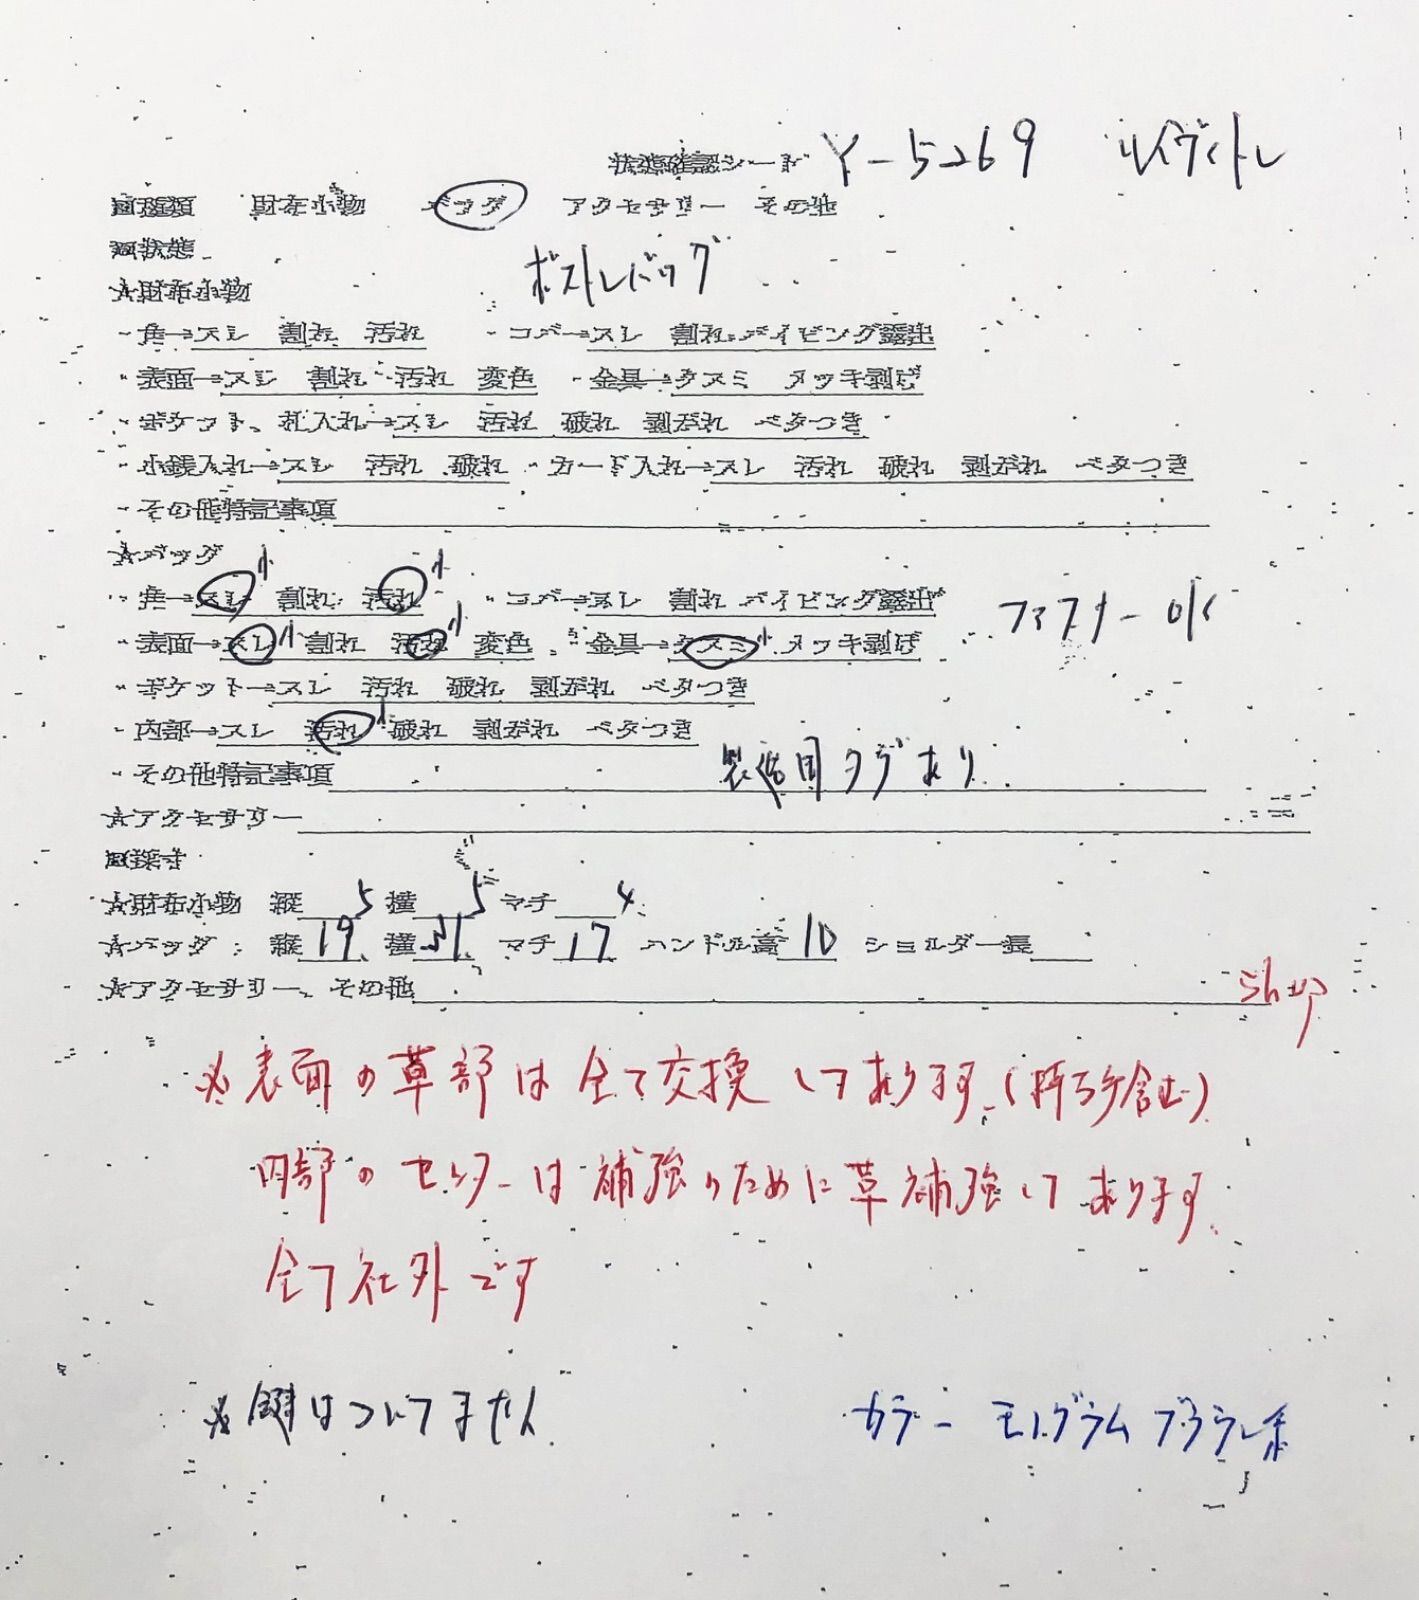 状態確認シート Y-5269 ルイヴィトン
財布小物 バッグ アクセサリー その他
■状態
ボストンバッグ
☆財布小物
・角→スレ 割れ 汚れ ・コバ→スレ 割れ パイピング露出
・表面→スレ 割れ 汚れ 変色 ・金具→クスミ メッキ剥げ
・ポケット、札入れ→スレ 汚れ 破れ 剥がれ ベタつき
・小銭入れ→スレ 汚れ 破れ ・カード入れ→スレ 汚れ 破れ 剥がれ ベタつき
・その他特記事項
☆バッグ
・角→スレ小 割れ 汚れ小 ・コバ→スレ 割れ パイピング露出
ファスナーOK
・表面→スレ小 割れ 汚れ小 変色 ・金具→クスミ小 メッキ剥げ
・ポケット→スレ 汚れ 破れ 剥がれ ベタつき
・内部→スレ 汚れ小 破れ 剥がれ ベタつき
・その他特記事項 製造国タグあり
☆アクセサリー
■採寸
☆財布小物 縦 5 横 5 マチ 4
☆バッグ 縦 19 横 31 マチ 17 ハンドル高 10 ショルダー長
☆アクセサリー、その他
shop
※表面の革部は全て交換してあります。(持ち手含む)
内部のセンターは補強のために革補強してあります。
全て社外です
※鍵はついてません
カラー モノグラムブラウン系